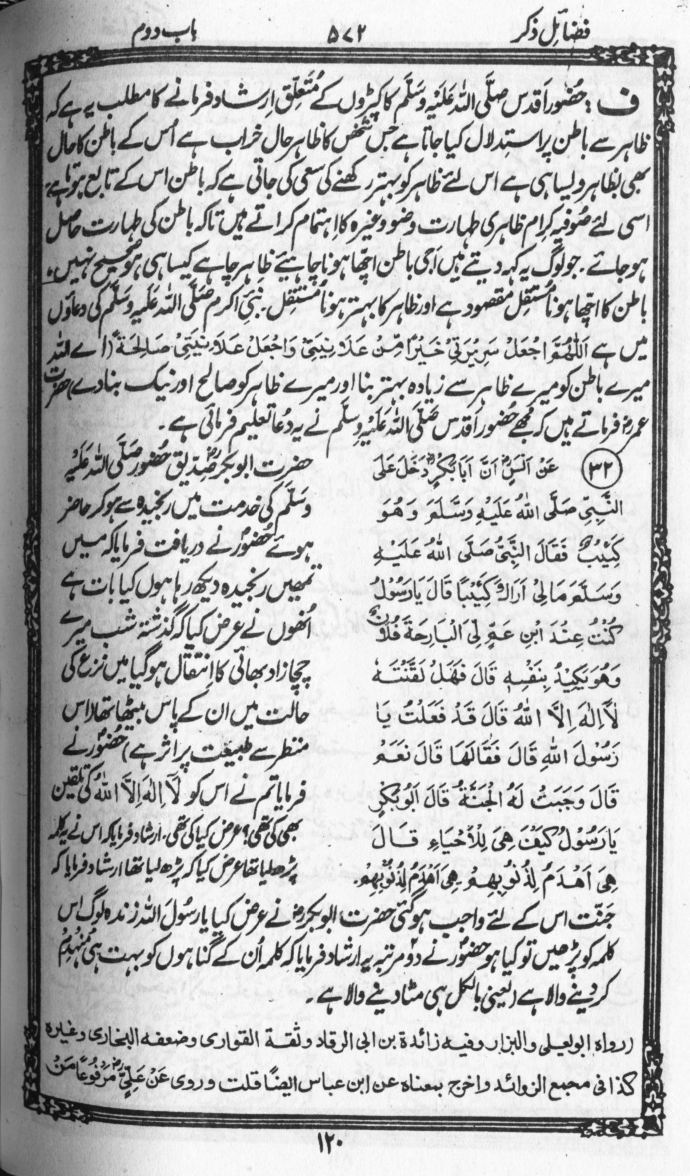 فضائل ذکر
۵۷۲
باب دوم
ف : حضور اقدس صلی اللہ علیہ وسلم کا کپڑوں کے متعلق ارشاد فرمانے کا مطلب یہ ہے کہ
ظاہر سے باطن پر استدلال کیا جاتا ہے جس شخص کا ظاہر حال خراب ہے اُس کے باطن کا حال
بھی بظاہر ویسا ہی ہے اس لئے ظاہر کو بہتر رکھنے کی سعی کی جاتی ہے کہ باطن اس کے تابع ہوتا ہے،
اسی لئے صوفیہ کرام ظاہری طہارت وضو وغیرہ کا اہتمام کراتے ہیں تاکہ باطن کی طہارت حاصل
ہو جائے ۔ جو لوگ یہ کہہ دیتے ہیں اجی باطن اچھا ہونا چاہیئے ظاہر چاہے کیسا ہی ہو صحیح نہیں،
باطن کا اچھا ہونا مستقل مقصود ہے اور ظاہر کا بہتر ہونا مستقل ۔ نبی اکرم صلی اللہ علیہ وسلم کی دعاؤں
میں ہے اَللّٰهُمَّ اجْعَلْ سَرِيْرَتِيْ خَيْرًا مِّنْ عَلَانِيَتِيْ وَاجْعَلْ عَلَانِيَتِيْ صَالِحَةً (اے اللہ
میرے باطن کو میرے ظاہر سے زیادہ بہتر بنا اور میرے ظاہر کو صالح اور نیک بنا دے) حضرت
عمرؓ فرماتے ہیں کہ مجھے حضور اقدس صلی اللہ علیہ وسلم نے یہ دعا تعلیم فرمائی ہے ۔
(۳۲) عَنْ اَنَسٍؓ اَنَّ اَبَا بَكْرٍؓ دَخَلَ عَلَى
النَّبِيِّ صَلَّى اللهُ عَلَيْهِ وَسَلَّمَ وَهُوَ
كَئِيْبٌ فَقَالَ النَّبِيُّ صَلَّى اللهُ عَلَيْهِ
وَسَلَّمَ مَالِيْ اَرَاكَ كَئِيْبًا قَالَ يَا رَسُوْلَ
كُنْتُ عِنْدَ ابْنِ عَمٍّ لِيْ الْبَارِحَةَ فُلَانٍ
وَهُوَ يَكِيْدُ بِنَفْسِهٖ قَالَ فَهَلْ لَقَّنْتَهٗ
لَا اِلٰهَ اِلَّا اللهُ قَالَ قَدْ فَعَلْتُ يَا
رَسُوْلَ اللهِ قَالَ فَقَالَهَا قَالَ نَعَمْ
قَالَ وَجَبَتْ لَهُ الْجَنَّةُ قَالَ اَبُوْبَكْرٍ
يَا رَسُوْلَ كَيْفَ هِيَ لِلْاَحْيَاءِ قَالَ
هِيَ اَهْدَمُ لِذُنُوْبِهِمْ هِيَ اَهْدَمُ لِذُنُوْبِهِمْ.
حضرت ابوبکر صدیقؓ حضور صلی اللہ علیہ
وسلم کی خدمت میں رنجیدہ سے ہو کر حاضر
ہوئے حضورؐ نے دریافت فرمایا کہ میں
تمھیں رنجیدہ دیکھ رہا ہوں کیا بات ہے
اُنھوں نے عرض کیا کہ گذشتہ شب میرے
چچا زاد بھائی کا انتقال ہو گیا میں نزع کی
حالت میں ان کے پاس بیٹھا تھا (اس
منظر سے طبیعت پر اثر ہے) حضورؐ نے
فرمایا تم نے اس کو لَا اِلٰهَ اِلَّا اللهُ کی تلقین
بھی کی تھی؟ عرض کیا کی تھی ۔ ارشاد فرمایا کہ اس نے یہ کلمہ
پڑھ لیا تھا عرض کیا کہ پڑھ لیا تھا ارشاد فرمایا کہ
جنت اس کے لئے واجب ہو گئی حضرت ابوبکرؓ نے عرض کیا یا رسول اللہ زندہ لوگ اس
کلمہ کو پڑھیں تو کیا ہو حضورؐ نے دو مرتبہ یہ ارشاد فرمایا کہ کلمہ اُن کے گناہوں کو بہت ہی منہدم
کر دینے والا ہے (یعنی بالکل ہی مٹا دینے والا ہے ۔
(رواه ابو يعلى والبزار وفيه زائدة بن ابى الرقاد وثقة القواري وضعفه البخارى وغيره
كذا فى مجمع الزوائد واخرج بمعناه عن ابن عباس ايضًا قلت وروى عَنْ عَلِيٍّ مَرْفُوْعًا مَنْ
۱۲۰